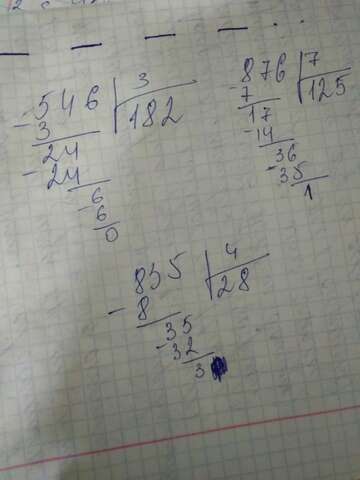 -546 | 3
3 | 182
24
-24
6
-6
0
-876 | 7
7 | 125
17
-14
36
-35
1
-835 | 4
8 | 28
35
-32
3